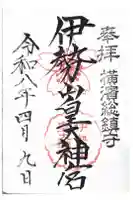 奉拝
横濱総鎮守
伊勢山皇大神宮
令和八年四月九日